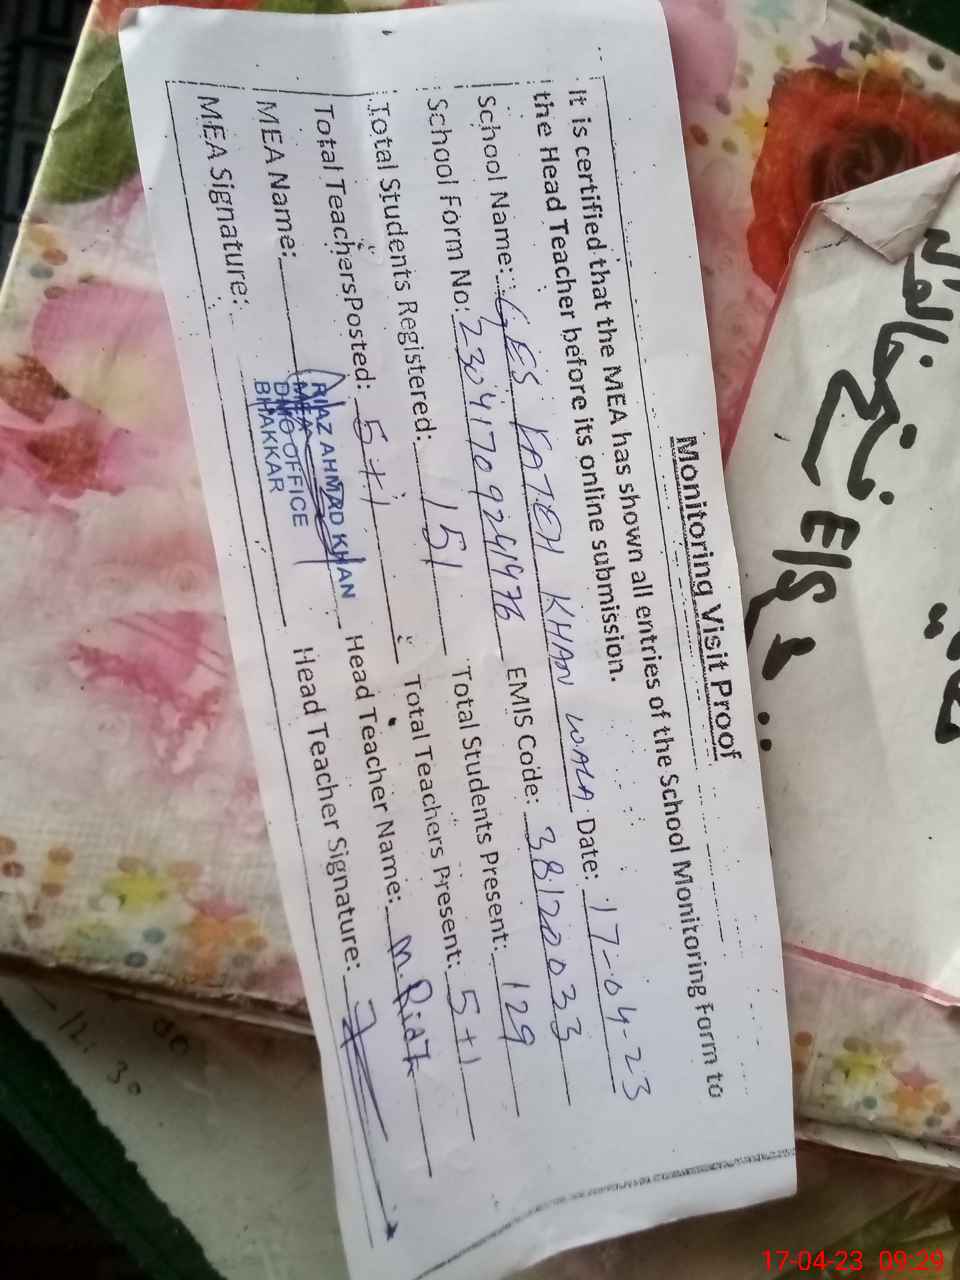 Monitoring Visit Proof
It is certified that the MEA has shown all entries of the School Monitoring Form to
the Head Teacher before its online submission.
School Name: GES KATEH KHAN WALA Date: 17-04-23
School Form No: EMIS Code: 38120033
Total Students Registered: 151 Total Students Present: 129
Total TeachersPosted: 5+1 Total Teachers Present: 5+1
MEA Name: Head Teacher Name: M.
MEA Signature: Head Teacher Signature:
RIAZ AHMAD KHAN
MEA
DMO OFFICE
BHAKKAR
12:30
17-04-23 09:29